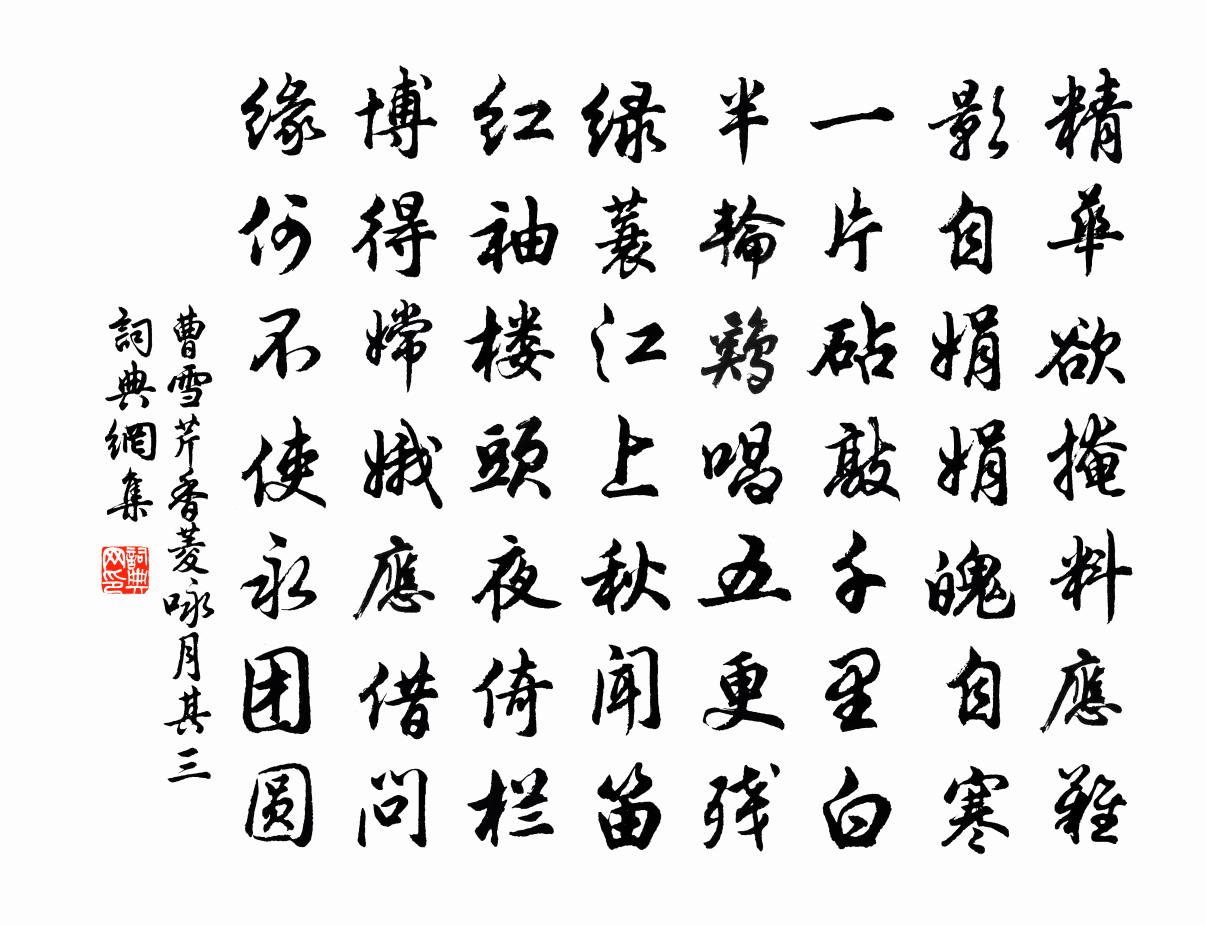 精華欲掩料應難
影自娟娟魄自寒
一片砧敲千里白
半輪鷄唱五更残
緑蓑江上秋聞笛
红袖楼頭夜倚栏
博得嫦娥應借問
缘何不使永团圆
曹雪芹香菱咏月其三
詞典網集
詞典网印